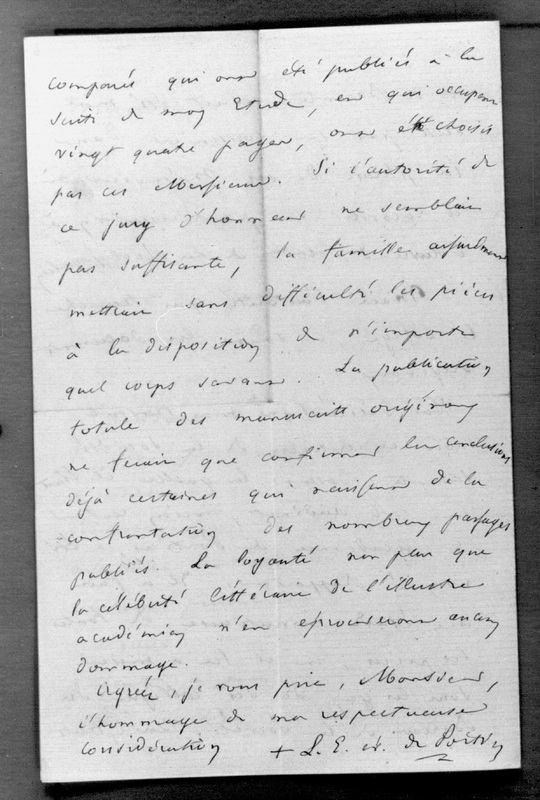 composés qui ont été publiés à la
suite de mon Etude, et qui occupent
vingt quatre pages, ont été choisis
par ces Messieurs. Si l'autorité de
ce jury d'honneur ne semblait
pas suffisante, la famille assurément
mettrait sans difficulté les pièces
à la disposition de n'importe
quel corps savant. La publication
totale des manuscrits originaux
ne ferait que confirmer les conclusions
déjà certaines qui naissent de la
confrontation des nombreux passages
publiés. La loyauté non plus que
la célébrité littéraire de l'illustre
académicien n'en éprouveront aucun
dommage.
Agréez, je vous prie, Monsieur,
l'hommage de ma respectueuse
considération + L. E. év. de Poitiers